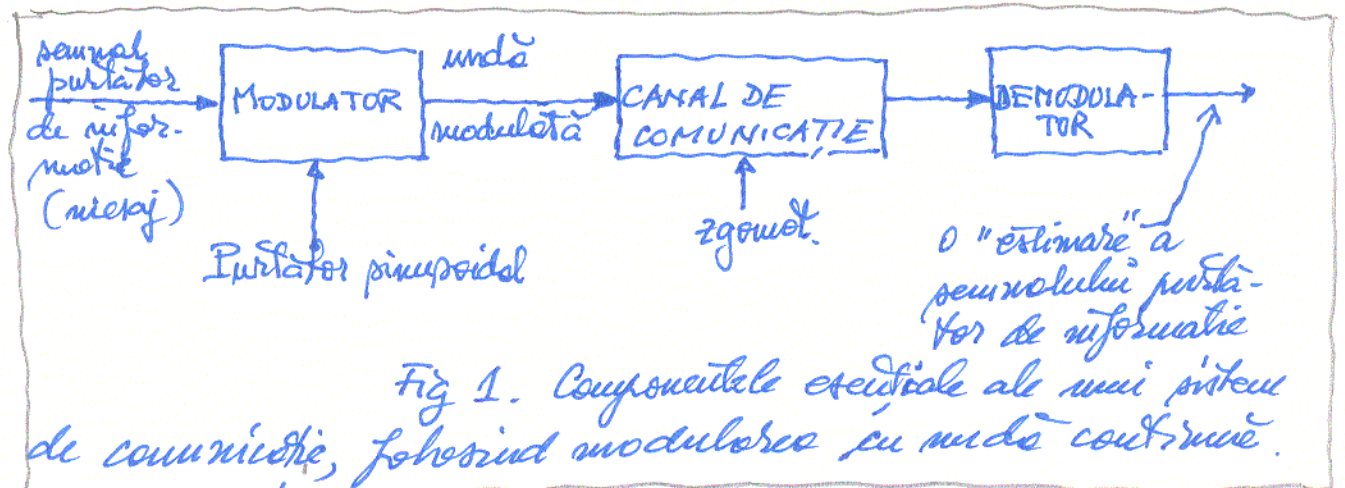 semnal
purtător
de infor-
mație
(mesaj)
MODULATOR
undă
modulată
CANAL DE
COMUNICAȚIE
DEMODULA-
TOR
Purtător sinusoidal
zgomot.
O "estimare" a
semnalului purtă-
tor de informatie
Fig 1. Componentele esențiale ale unui sistem
de comunicație, folosind modularea cu undă continuă.